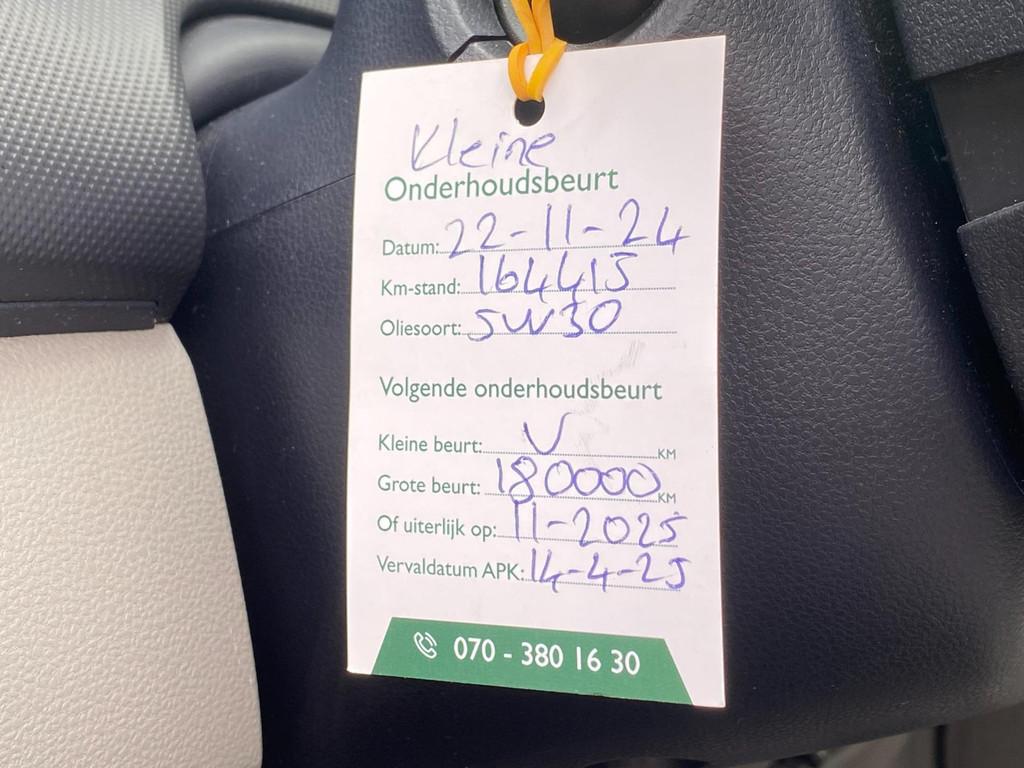 Kleine
Onderhoudsbeurt
Datum: 22-11-24
Km-stand: 164415
Oliesoort: 5W30
Volgende onderhoudsbeurt
Kleine beurt: V KM
Grote beurt: 180000 KM
Of uiterlijk op: 11-2025
Vervaldatum APK: 14-4-25
070 - 380 16 30